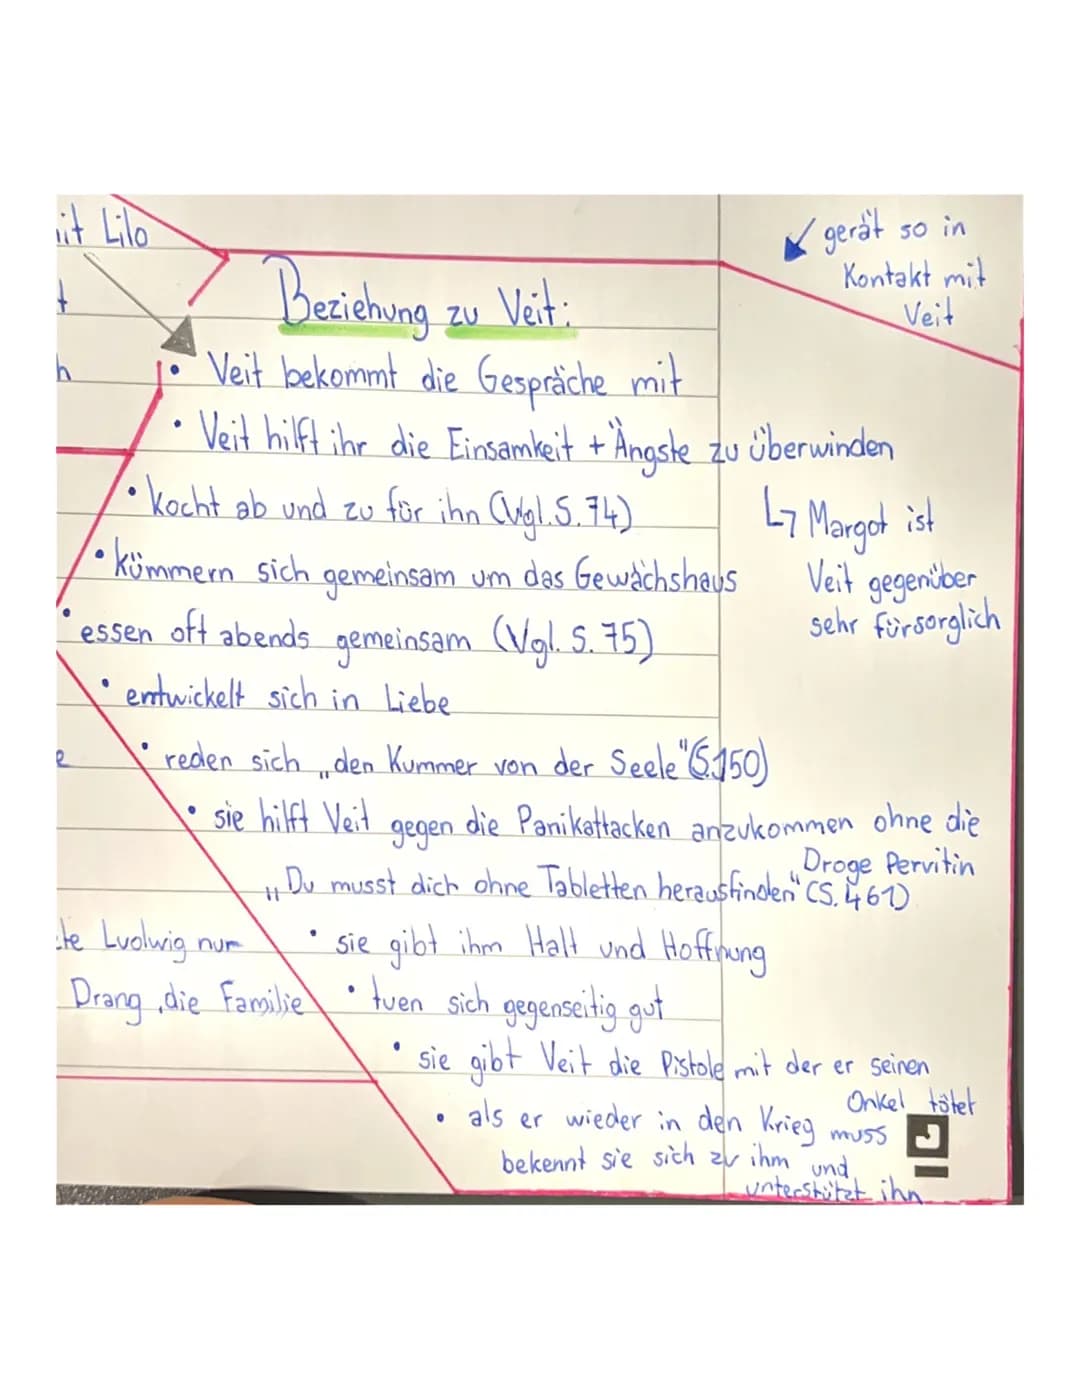 it Lilo
gerät so in
Kontakt mit
Veit
Beziehung zu Veit:
t
h
• Veit bekommt die Gespräche mit
• Veit hilft ihr die Einsamkeit + Ängste zu überwinden
• kocht ab und zu für ihn (Vgl. S. 74)
↳ Margot ist
Veit gegenüber
sehr fürsorglich
• kümmern sich gemeinsam um das Gewächshaus
• essen oft abends gemeinsam (Vgl. S. 75)
• entwickelt sich in Liebe
e
• reden sich „den Kummer von der Seele" (S.150)
• sie hilft Veit gegen die Panikattacken anzukommen ohne die
Droge Pervitin
„Du musst dich ohne Tabletten herausfinden" (S. 461)
te Ludwig nur
Drang, die Familie
• sie gibt ihm Halt und Hoffnung
• tuen sich gegenseitig gut
• sie gibt Veit die Pistole mit der er seinen
Onkel tötet
• als er wieder in den Krieg muss
bekennt sie sich zu ihm und
unterstützt ihn